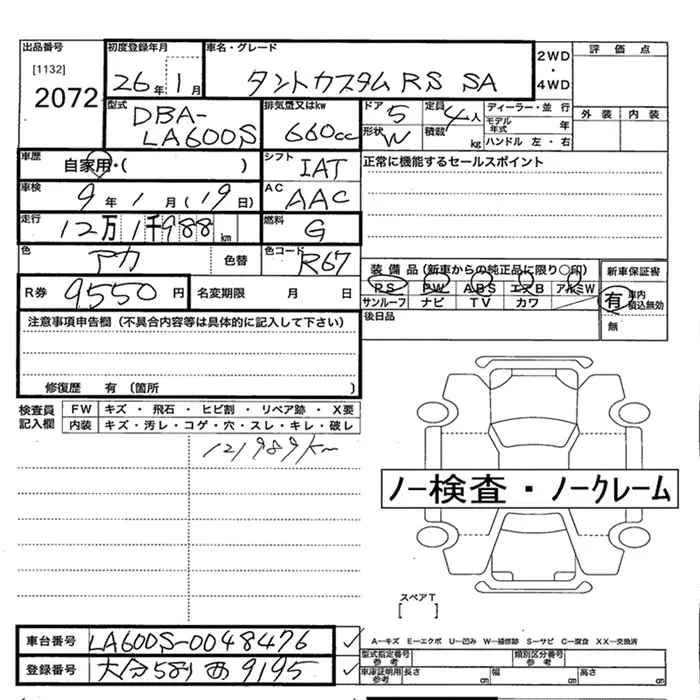 出品番号 初度登録年月 車名・グレード 2WD・4WD 評価点
[1132]
2072
26年1月 タントカスタム RS SA
型式 排気量又はkw ドア 定員 ディーラー・並行 外装 内装
DBA-LA600S 660cc 5 4人
モデル年式 年
形状 W 積載 kg ハンドル 左・右
車歴 自家用・( ) シフト IAT 正常に機能するセールスポイント
車検 9年1月(19日) AC AAC
走行 12万1千988km 燃料 G
色 アカ 色替 色コード R67
装備品(新車からの純正品に限り○印) 新車保証書
PS PW ABS エアB アルミW
サンルーフ ナビ TV カワ
有 車内積込無効
無
R券 9550円 名変期限 月 日 後日品
注意事項申告欄(不具合内容等は具体的に記入して下さい)
修復歴 有(箇所 )
検査員記入欄 FW キズ・飛石・ヒビ割・リペア跡・X要
内装 キズ・汚レ・コゲ・穴・スレ・キレ・破レ
121989km
ノー検査・ノークレーム
スペアT
[ ]
車台番号 LA600S-0048476
A-キズ E-エクボ U-凹み W-補修跡 S-サビ C-腐食 XX-交換済
登録番号 大分581 9195
型式指定番号 参考 類別区分番号 参考
車庫証明用 参考 長さ cm 幅 cm 高さ cm